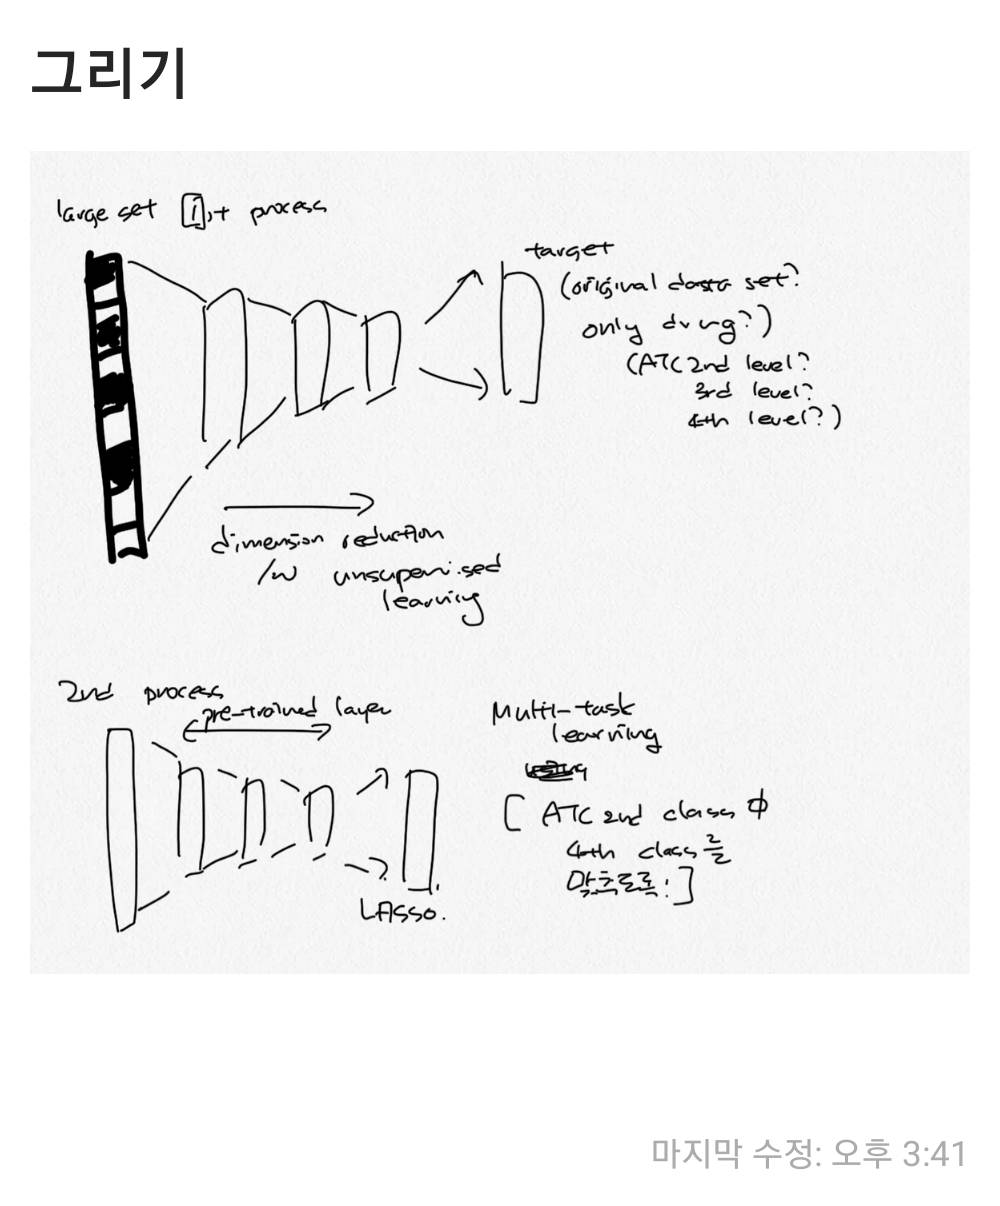 그리기
large set 1st process
target
(original data set?
only drug?)
(ATC 2nd level?
3rd level?
4th level?)
dimension reduction
/w unsupervised
learning
2nd process
pre-trained layer
Multi-task
learning
[ ATC 2nd class
4th class를
맞추도록!]
LASSO.
마지막 수정: 오후 3:41